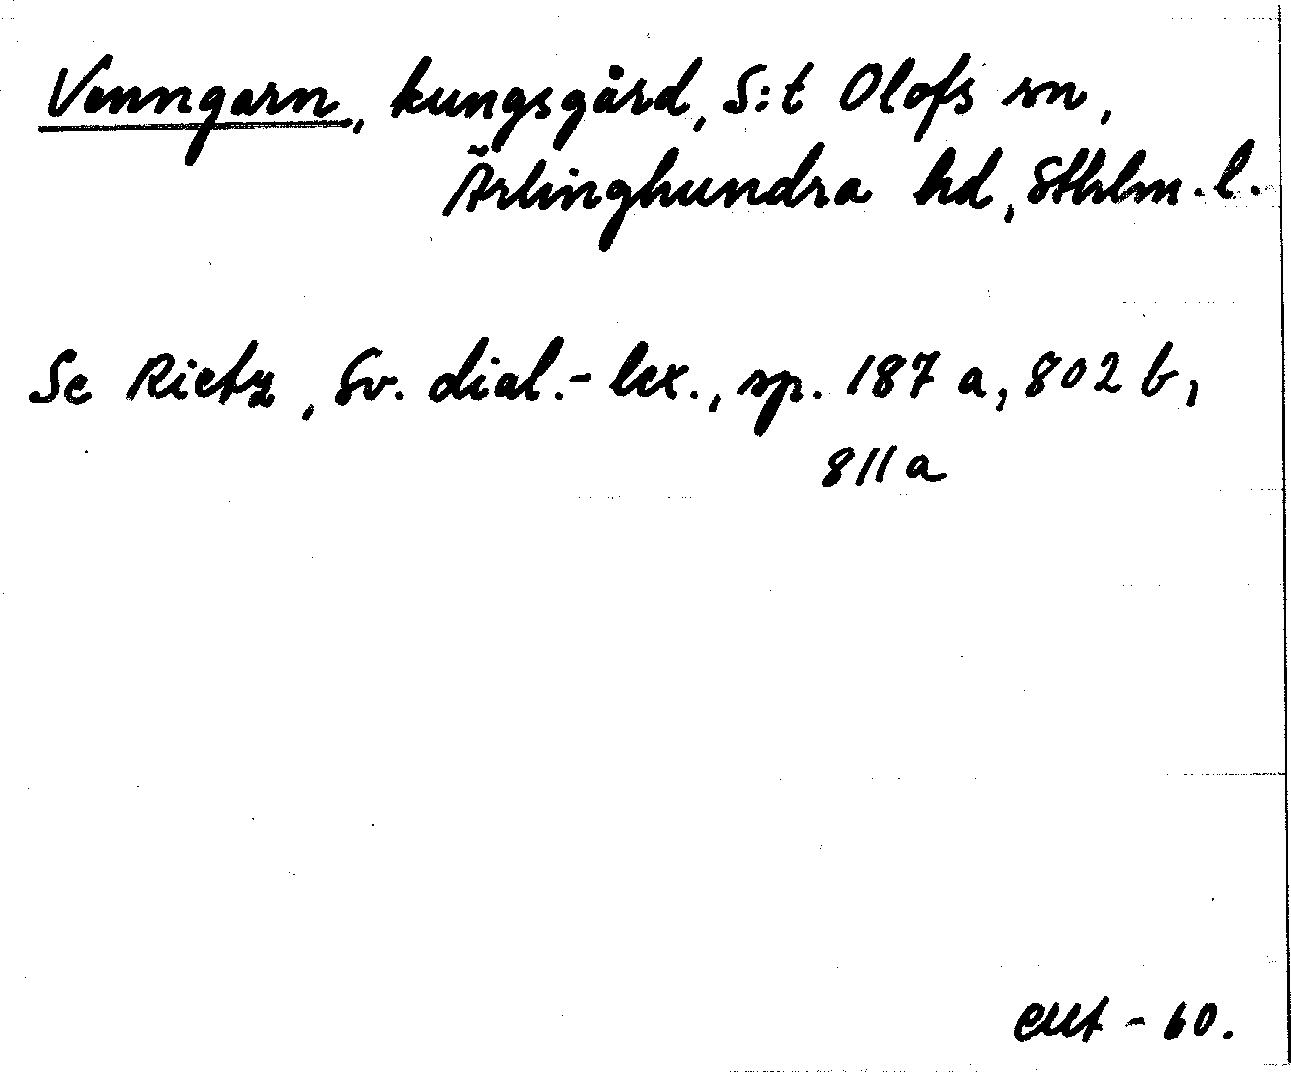 Venngarn, kungsgård, S:t Olofs sn,
Ärlinghundra hd, Sthlm. l.
Se Rietz, Sv. dial.- lex., sp. 187 a, 802 b,
811 a
- 60.